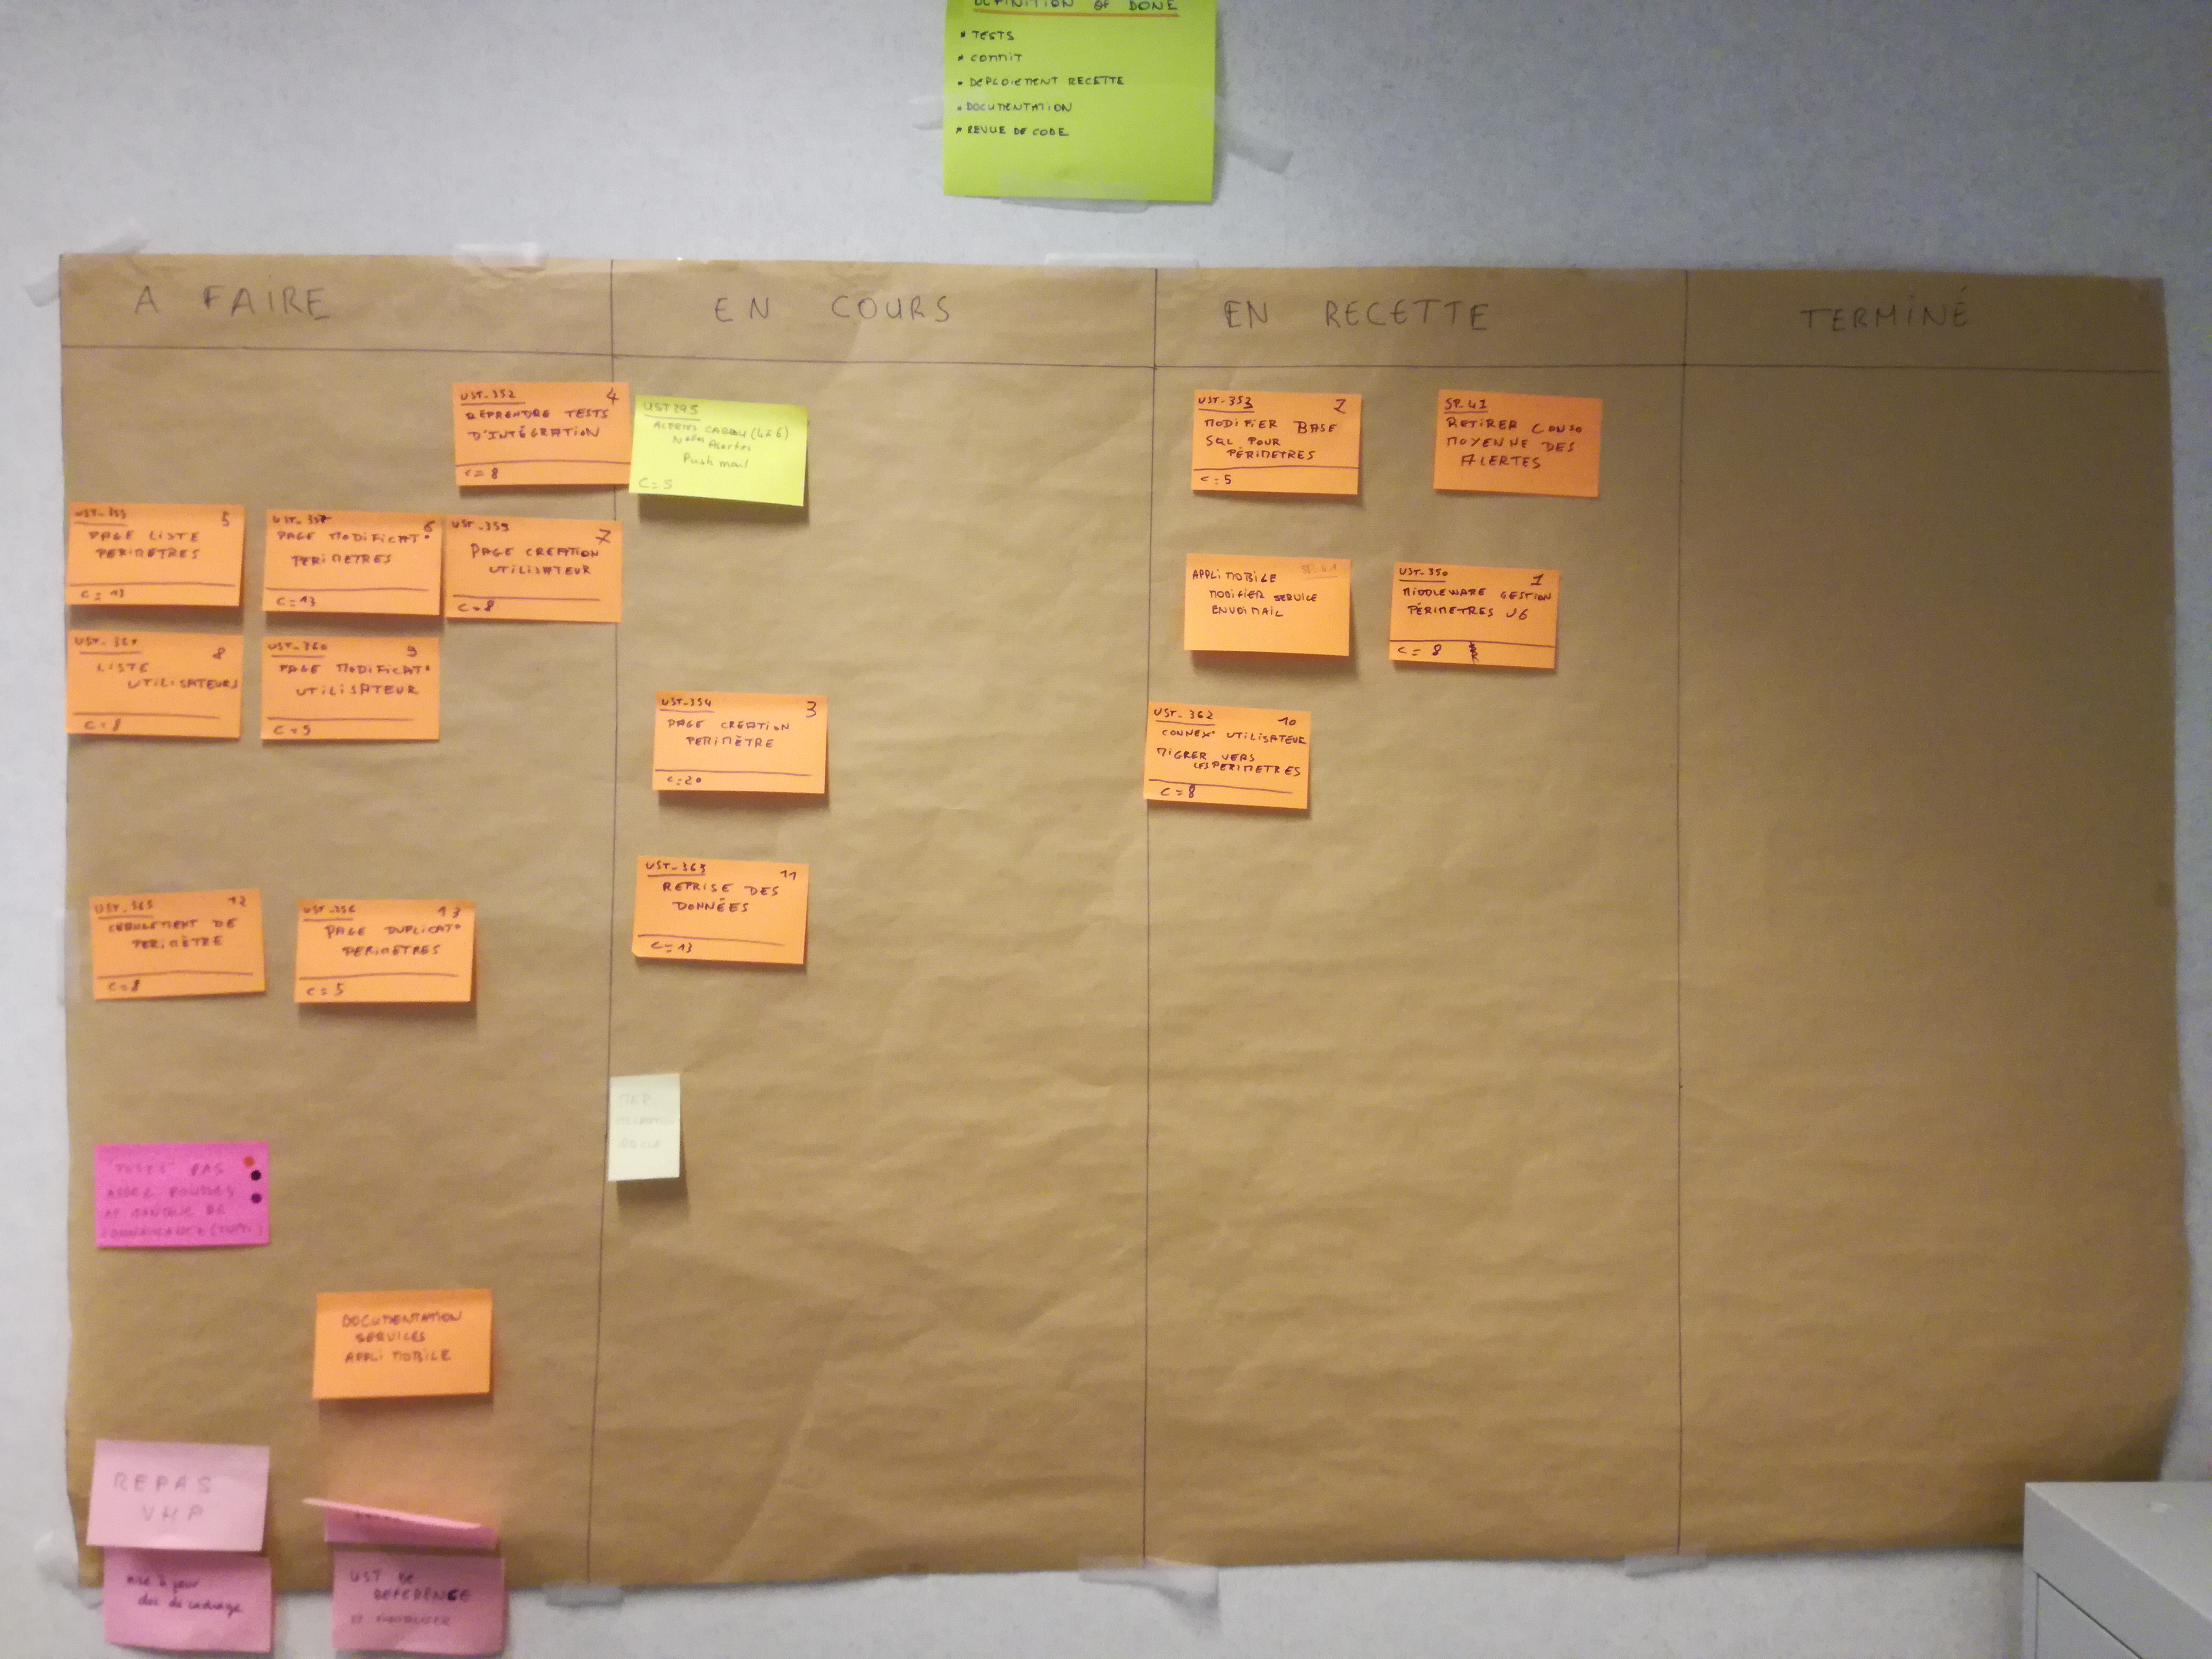 DEFINITION OF DONE
* TESTS
* COMMIT
• DEPLOIEMENT RECETTE
• DOCUMENTATION
* REVUE DE CODE
A FAIRE
EN COURS
EN RECETTE
TERMINÉ
UST-352 4
REPRENDRE TESTS
D'INTÉGRATION
C=8
5
PAGE LISTE
PERIMETRES
C=13
UST-357 6
PAGE MODIFICAT°
PERIMETRES
C=13
UST-359 7
PAGE CREATION
UTILISATEUR
C=8
8
LISTE
UTILISATEURS
C=8
UST-360 9
PAGE MODIFICAT°
UTILISATEUR
C=5
12
DE
PERIMÈTRE
C=8
UST-356 13
PAGE DUPLICAT°
PERIMETRES
C=5
PAS
ASSEZ
DE
DOCUMENTATION
SERVICES
APPLI MOBILE
REPAS
VHP
mise à jour
doc de cadrage
UST DE
REFERENCE
UST295
ALERTES (4à6)
Nlles Alertes
Push mail
C=5
UST-354 3
PAGE CREATION
PERIMÈTRE
C=20
UST-363 11
REPRISE DES
DONNÉES
C=13
UST-353 2
MODIFIER BASE
SQL POUR
PÉRIMETRES
C=5
SP-41
RETIRER CONSO
MOYENNE DES
ALERTES
APPLI MOBILE
MODIFIER SERVICE
ENVOI MAIL
UST-350 1
MIDDLEWARE GESTION
PÉRIMETRES V6
C=8
UST-362 10
CONNEX° UTILISATEUR
MIGRER VERS
LES PERIMETRES
C=8